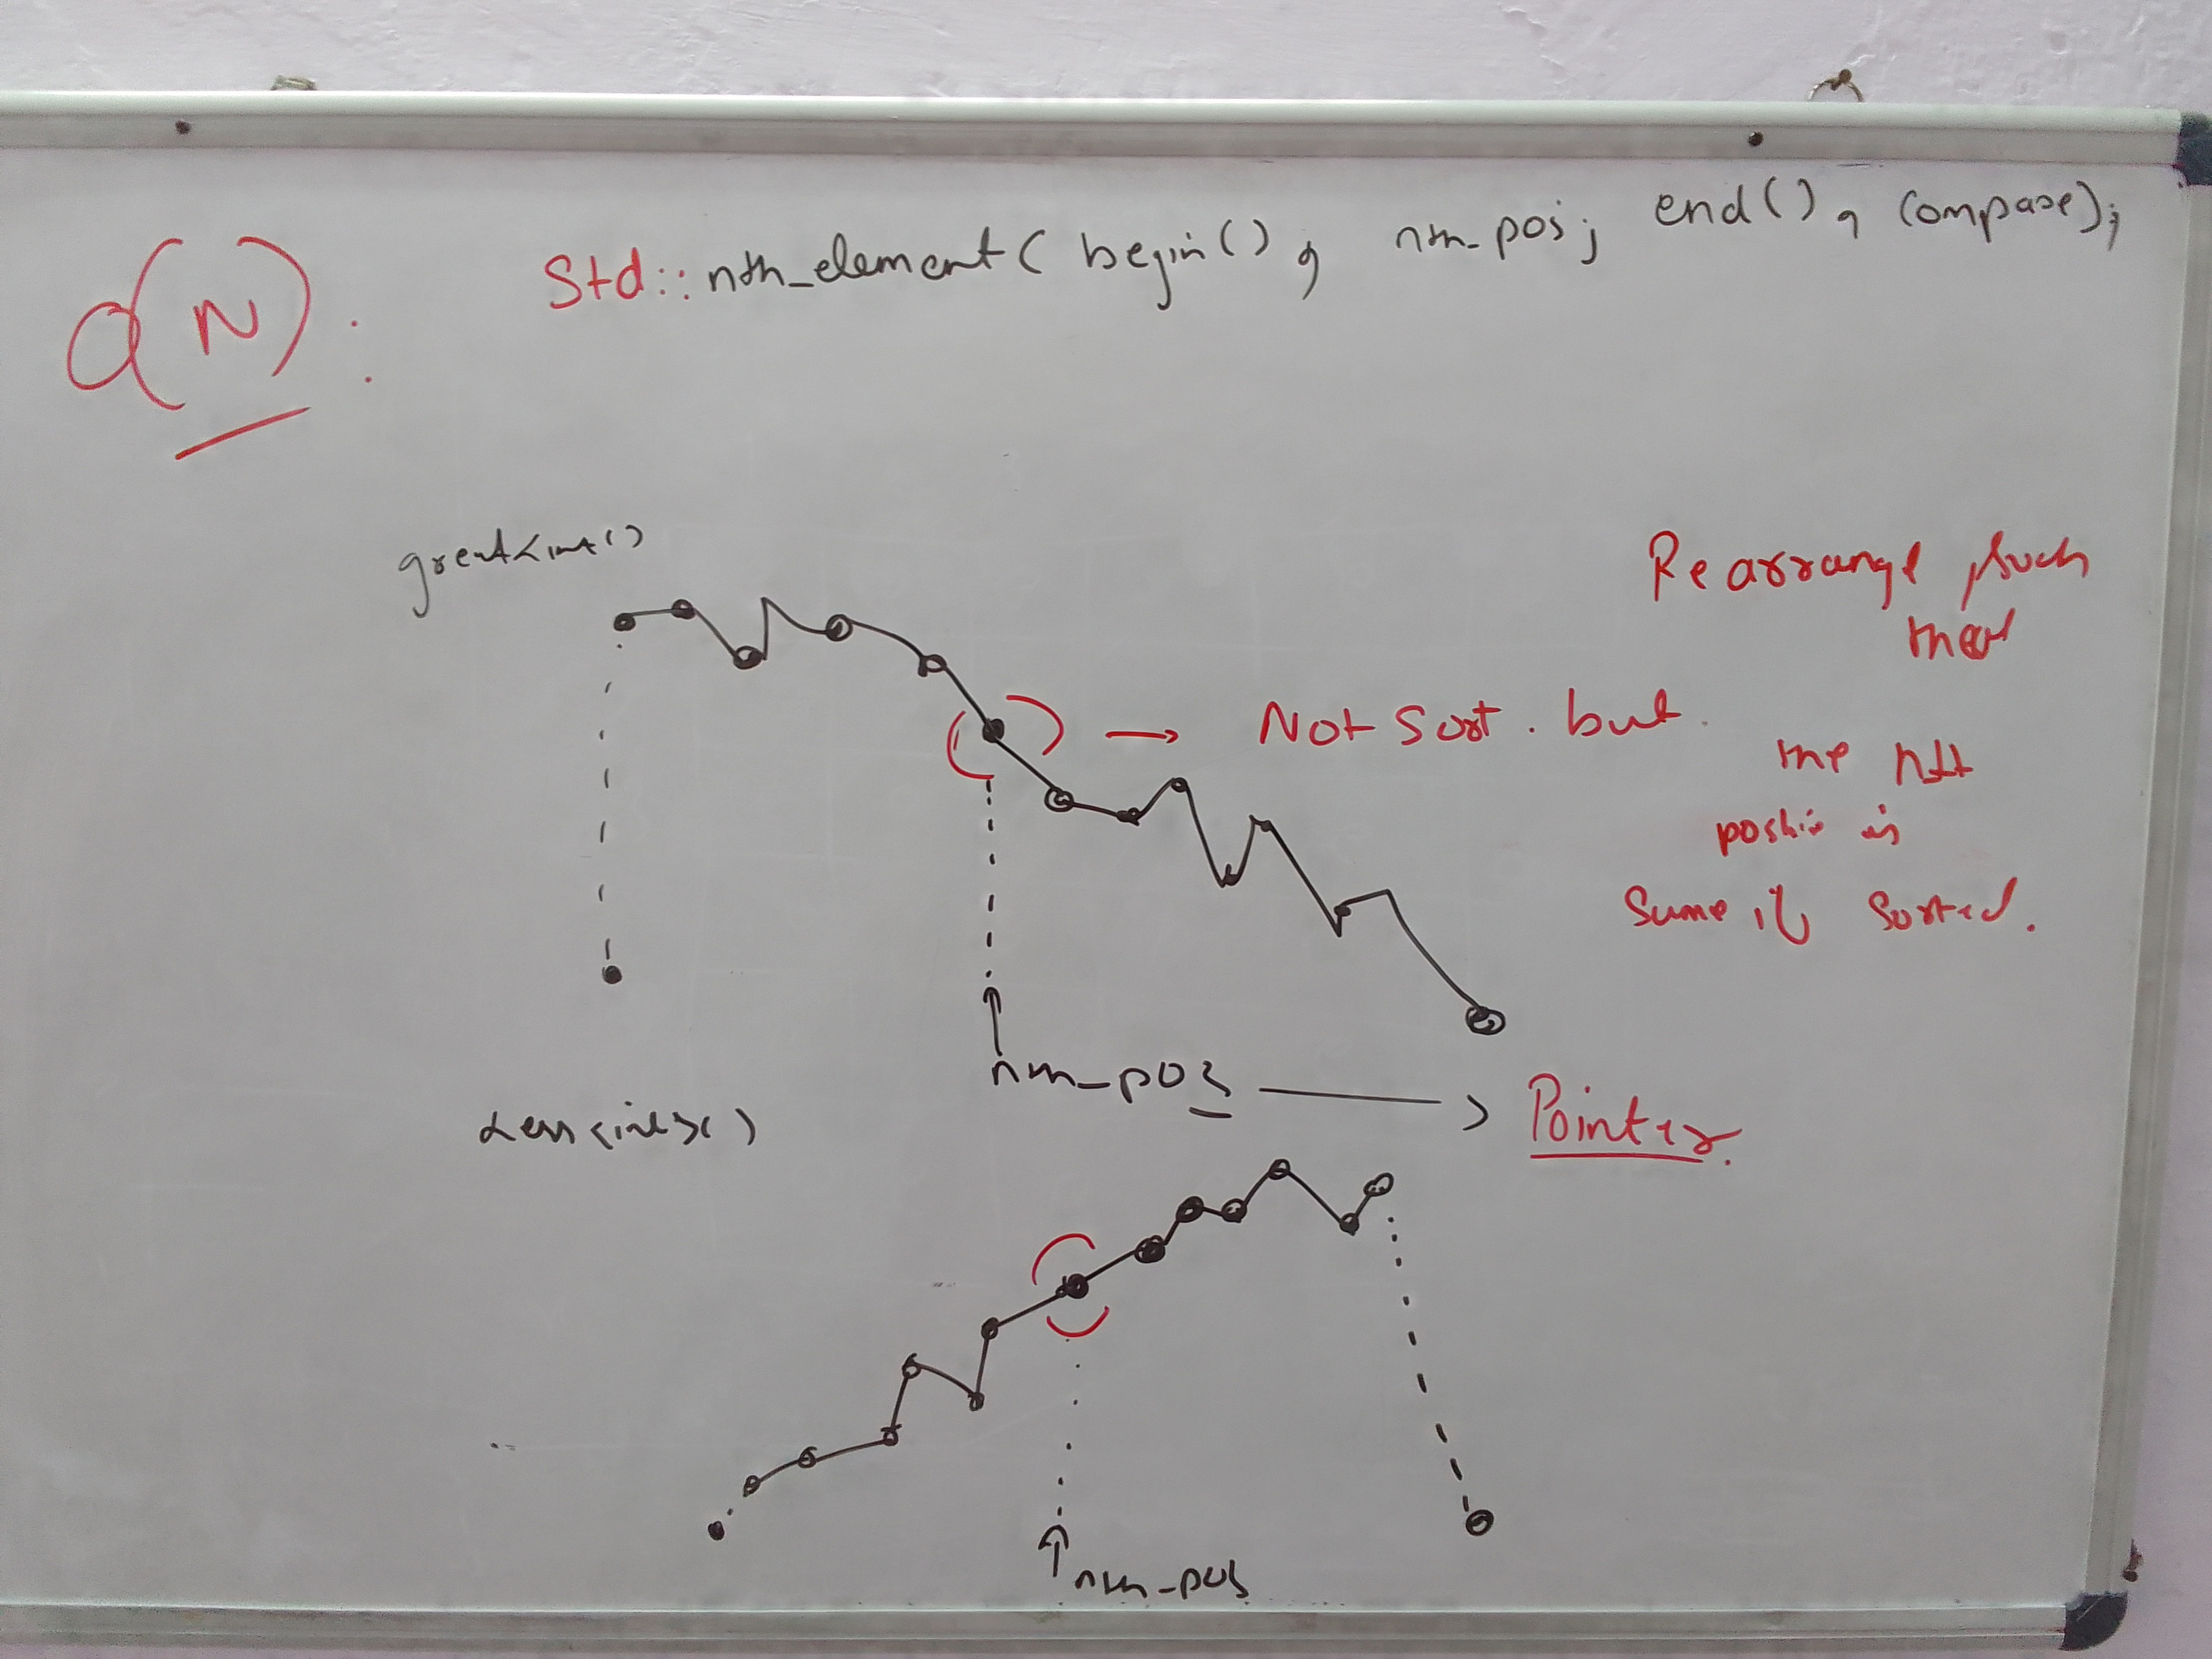 O(N) :
Std::nth_element( begin() , nth_pos; end() , compare);
great<int()
Rearrange such
that
Not Sort. but.
the nth
positio is
same if sorted.
nth_pos
Pointer.
Less<int>()
nth_pos